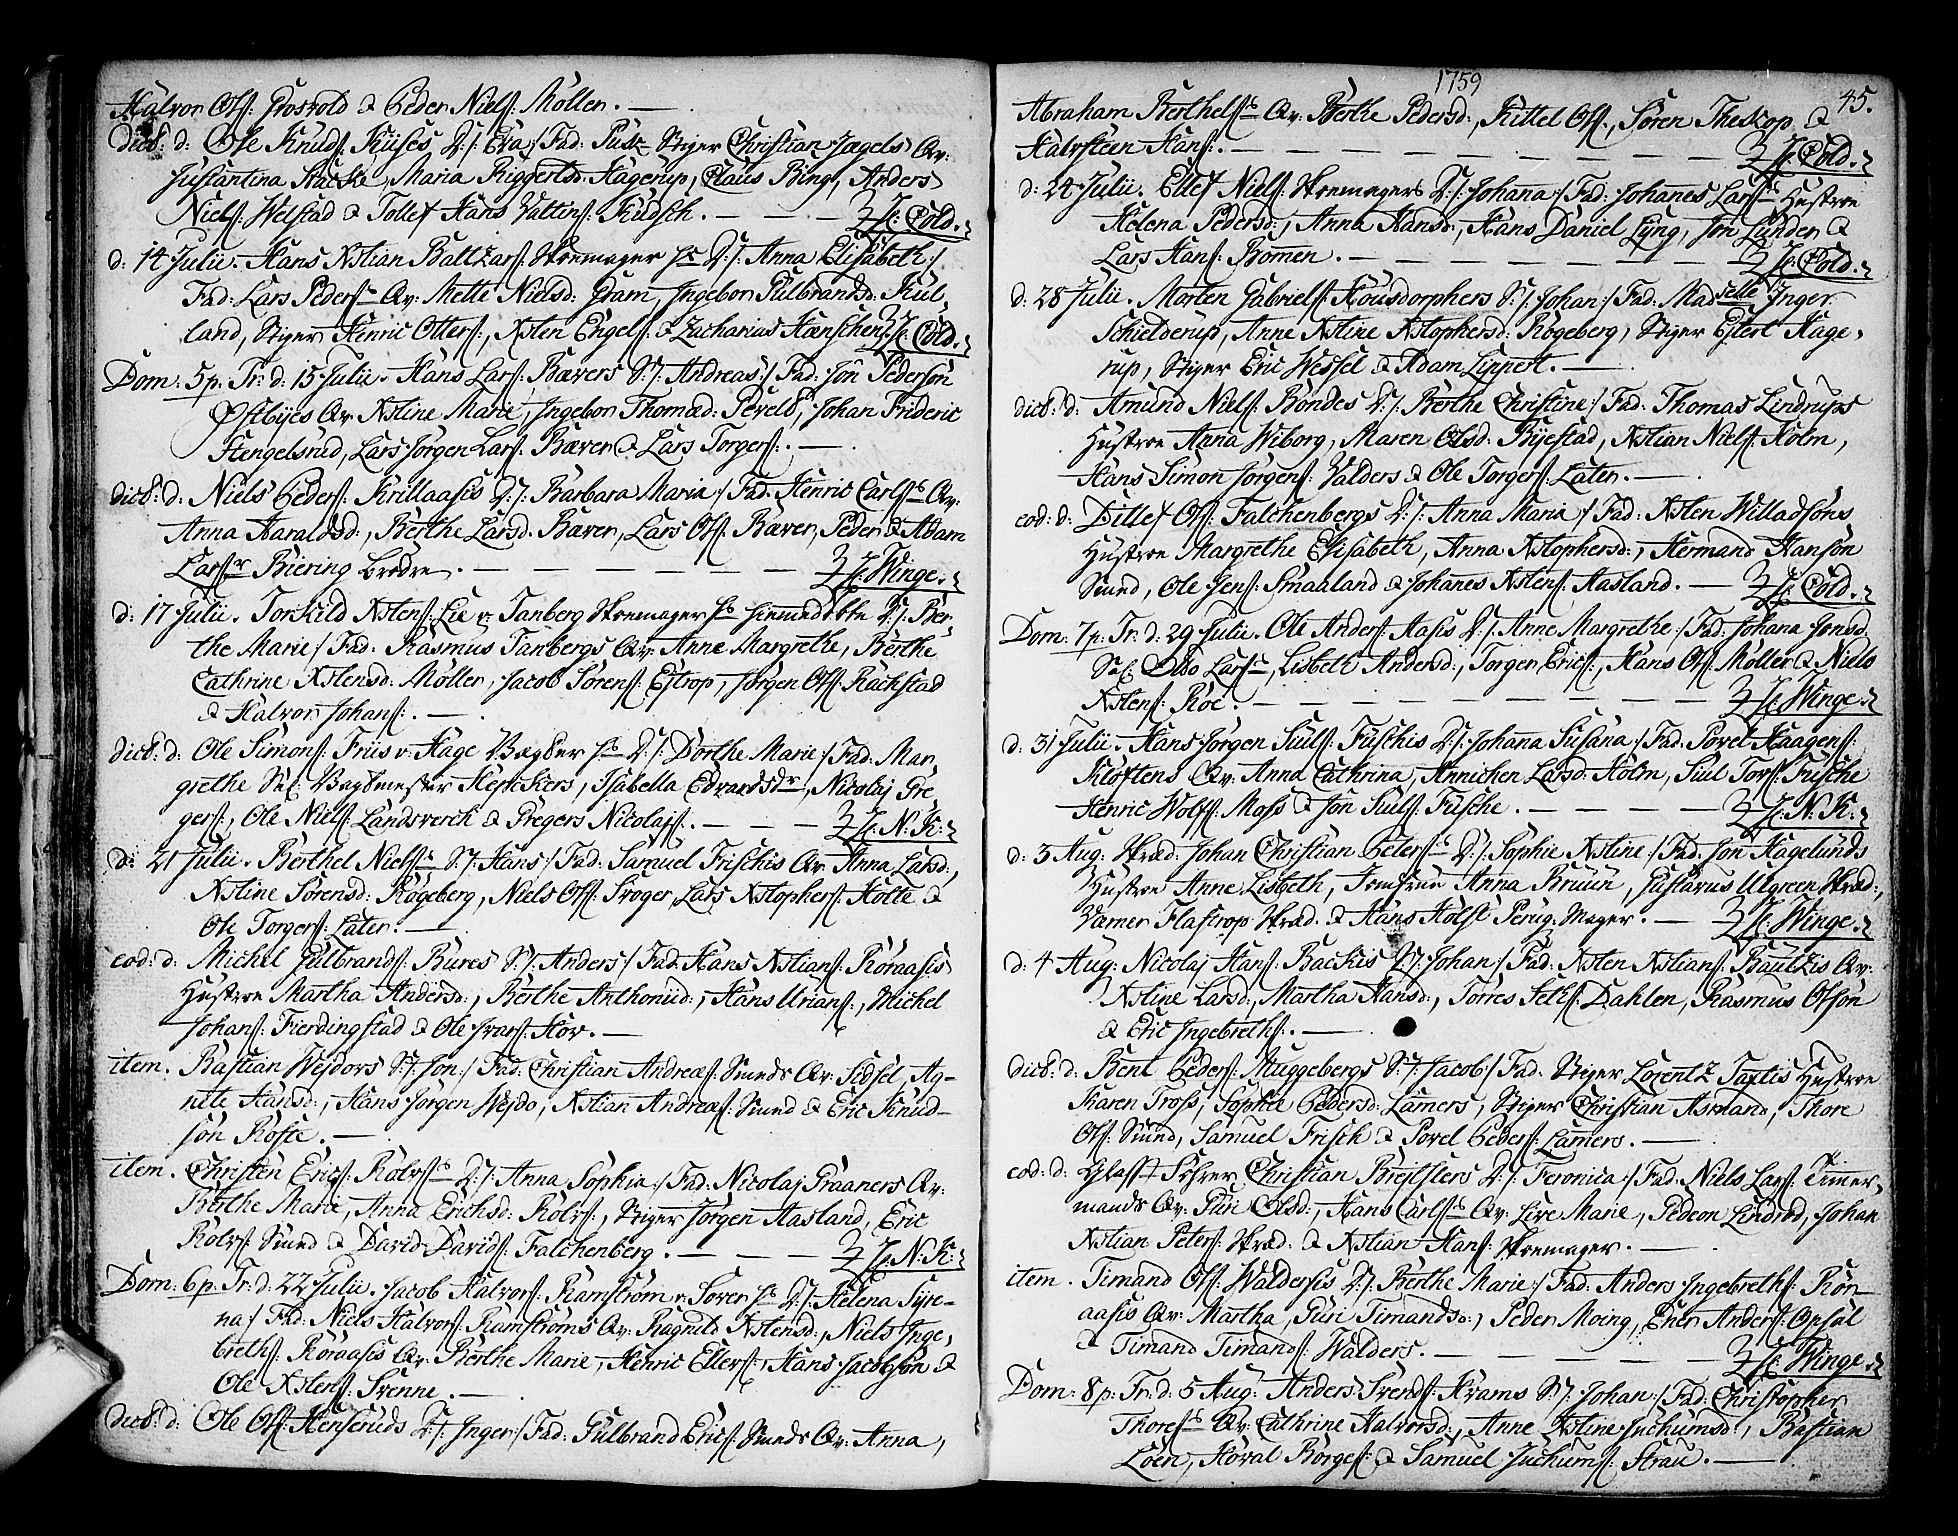 Halvor Ols: Groswold & Peder Niels: Möller. —
dict: d: Ole Knuds: Kuises D:/: Eva :/ Fad: Geschw: Stiger Christian Jægels Qv:
Justantina Stacke, Maria Riggertsd: Hagerup, Claus Bing, Anders
Niels: Welstad & Tollef Hans Valtins: Kudsch. — — — H: Cold.
d: 14 Julii. Hans Xstian Baltzars: Skoemager D:/: Anna Elisabeth :/
Fad: Lars Peders: Qv: Mette Nielsd: Gram, Ingebor Gulbrandsd: Kul-
land, Stiger Henric Otters:, Xsten Engels: & Zacharius Hænschen H: Cold.
Dom: 5 p: Tr: d: 15 Julii. Hans Lars: Bævers S:/: Andreas :/ Fad: Jon Pedersön
Østbyes Qv: Xstine Marie, Ingebor Thomæd: Peveld, Johan Frideric
Stengelsrud, Lars Jörgen Lars: Bæver & Lars Torgers:. —
dict: d: Niels Peders: Krillaasis D:/: Barbara Maria :/ Fad: Henric Carls: Qv:
Anna Haraldsd:, Berthe Larsd: Bæver, Lars Ols: Bæver, Peder & Adam
Lars: Biering brödre. — — — — — — H: Winge.
d: 17 Julii. Torkild Xstens: Lie v. Tanberg Skoemager hiemmedöbte D:/: Ber-
the Marie :/ Fad: Rasmus Tanbergs Qv: Anne Margrethe, Berthe
Cathrine Xstensd: Möller, Jacob Sörens: Ejtrop, Jörgen Ols: Rackstad
& Halvor Johans:. —
dict: d: Ole Simons: Friis v. Hage D:/: Dorthe Marie :/ Fad: Mar-
grethe Sal: Bagemester Hefickers, Isabella Edvardsdr, Nicolaj Gre-
gers:, Ole Niels: Landsverck & Gregers Nicolajs:. — — — H: N: K:
d: 21 Julii. Berthel Niels: S:/: Hans :/ Fad: Samuel Frischis Qv: Anna Larsd:,
Xstine Sörensd: Rögeberg, Niels Ols: Froger, Lars Xstophers: Holte &
Ole Torgers: Later. —
eod: d: Michel Gulbrands: Bures S:/: Anders :/ Fad: Hans Xstians: Röraasis
Hustroe Martha Andersd:, Berthe Anthoniid:, Hans Urians:, Michel
Johans: Fierdingstad & Ole Ivars: Hov. —
item. Bastian Wejdors S:/: Jon :/ Fad: Christian Andreæs: Smeds Qv: Sidsel, Ag-
nete Hansd:, Hans Jörgen Wejdo, Xstian Andreæs: Smed & Eric Knud-
sön Rofte. —
item. Christen Erics: Rolvs: D:/: Anna Sophia :/ Fad: Nicolaj Graaners Qv:
Berthe Marie, Anna Erichsd: Rolvs:, Stiger Jörgen Aasland, Eric
Rolvs: Smed & David Davids: Falchenberg. — — — H: N: K:
Dom: 6 p: Tr: d: 22 Julii. Jacob Halvors: Ramström v. Soren D:/: Helena Syre-
na :/ Fad: Niels Halvors: Ramströms Qv: Ragnild Xstensd:, Niels Inge-
breths: Röraasis Qv: Berthe Marie, Henric Ellers:, Hans Jacobsön &
Ole Xstens: Svenne. —
dict: d: Ole Ols: Henseruds D:/: Inger :/ Fad: Gulbrand Erics: Smeds Qv: Anna,
1759
45.
Abraham Berthels: Qv: Berthe Pedersd:, Kittel Ols:, Sören Theskop &
Halvsteen Hans:. — — — — — — H: Cold.
d: 24 Julii. Ellef Niels: Skoemagers D:/: Johana :/ Fad: Johanes Lars: Hustroe
Helena Pedersd:, Anna Hansd:, Hans Daniel Lyng, Jon Lunder &
Lars Hans: Bömen. — — — — — — H: Cold.
d: 28 Julii. Morten Gabriels: Housdorphers S:/: Johan :/ Fad: Madselle Inger
Schielderup, Anne Xstine Xstophersd: Rögeberg, Stiger Ejlert Hage-
rup, Stiger Eric Wessel & Adam Lippert. —
dict: d: Amund Niels: Böndes D:/: Berthe Christine :/ Fad: Thomas Lindrups
Hustroe Anna Wiborg, Maren Olsd: Byestad, Xstian Niels: Holm,
Hans Simon Jörgens: Valders & Ole Torgers: Later. —
eod: d: Dillef Ols: Falchenbergs D:/: Anna Maria :/ Fad: Xsten Willadsöns
Hustroe Margrethe Elisabeth, Anna Xstophersd:, Hermand Hansön
Smed, Ole Jens: Smaaland & Johanes Xstens: Aasland. — H: Cold.
Dom: 7 p: Tr: d: 29 Julii. Ole Anders: Aasis D:/: Anne Margrethe :/ Fad: Johana Jonsd:
Sal: Ebbo Lars:, Lisbeth Andersd:, Torger Erics:, Hans Ols: Möller & Niels
Xstens: Roe. — — — — — — H: Winge.
d: 31 Julii. Hans Jörgen Siuls: Fuschis D:/: Johana Susana :/ Fad: Povel Haagens:
Kloftens Qv: Anna Cathrina, Annichen Larsd: Holm, Siul Tors: Fusche
Henric Wolfs: Moss & Jon Siuls: Fusche. — — — — H: N: K:
d: 3 Aug: Skræd: Johan Christian Peters: D:/: Sophie Xstine :/ Fad: Jon Hagelunds
Hustroe Anne Lisbeth, Jomfrue Anna Bruun, Gustavus Ulgreen Skræd:,
Værner Flastrop Skræd: & Hans Holst Perug: Mager. — H: Winge.
d: 4 Aug: Nicolaj Hans: Backis S:/: Johan :/ Fad: Xsten Xstians: Bautzis Qv:
Xstine Larsd:, Martha Hansd:, Torres Seths: Dahlen, Rasmus Olsön
& Eric Ingebreths:. —
dict: d: Bent Peders: Muggebergs S:/: Jacob :/ Fad: Stiger Lorentz Taxtis Hustroe
Karen Tross, Sophie Pedersd: Lamers, Stiger Christian Asmand, Thore
Ols: Smed, Samuel Frisch & Povel Peders: Lamers. —
eod: d: Glass Christian Brejtsters D:/: Feronica :/ Fad: Niels Lars: Timer-
mands Qv: Guri Olsd:, Hans Carls: Qv: Live Marie, Gedeon Lindrod, Johan
Xstian Peters: Skræd: & Xstian Hans: Skoemager. —
item. Timand Ols: Waldersis D:/: Berthe Marie :/ Fad: Anders Ingebreths: Rör-
aasis Qv: Martha, Guri Timandsd:, Peder Moing, Ener Anders: Opsal
& Timand Timands: Walders. — — — — H: Winge.
Dom: 8 p: Tr: d: 5 Aug: Anders Svends: Krams S:/: Johan :/ Fad: Christopher
Thores: Qv: Cathrine Halvorsd:, Anne Xstine Juchumsd:, Bastian
Löen, Hoval Börges: & Samuel Juchums: Strau. —